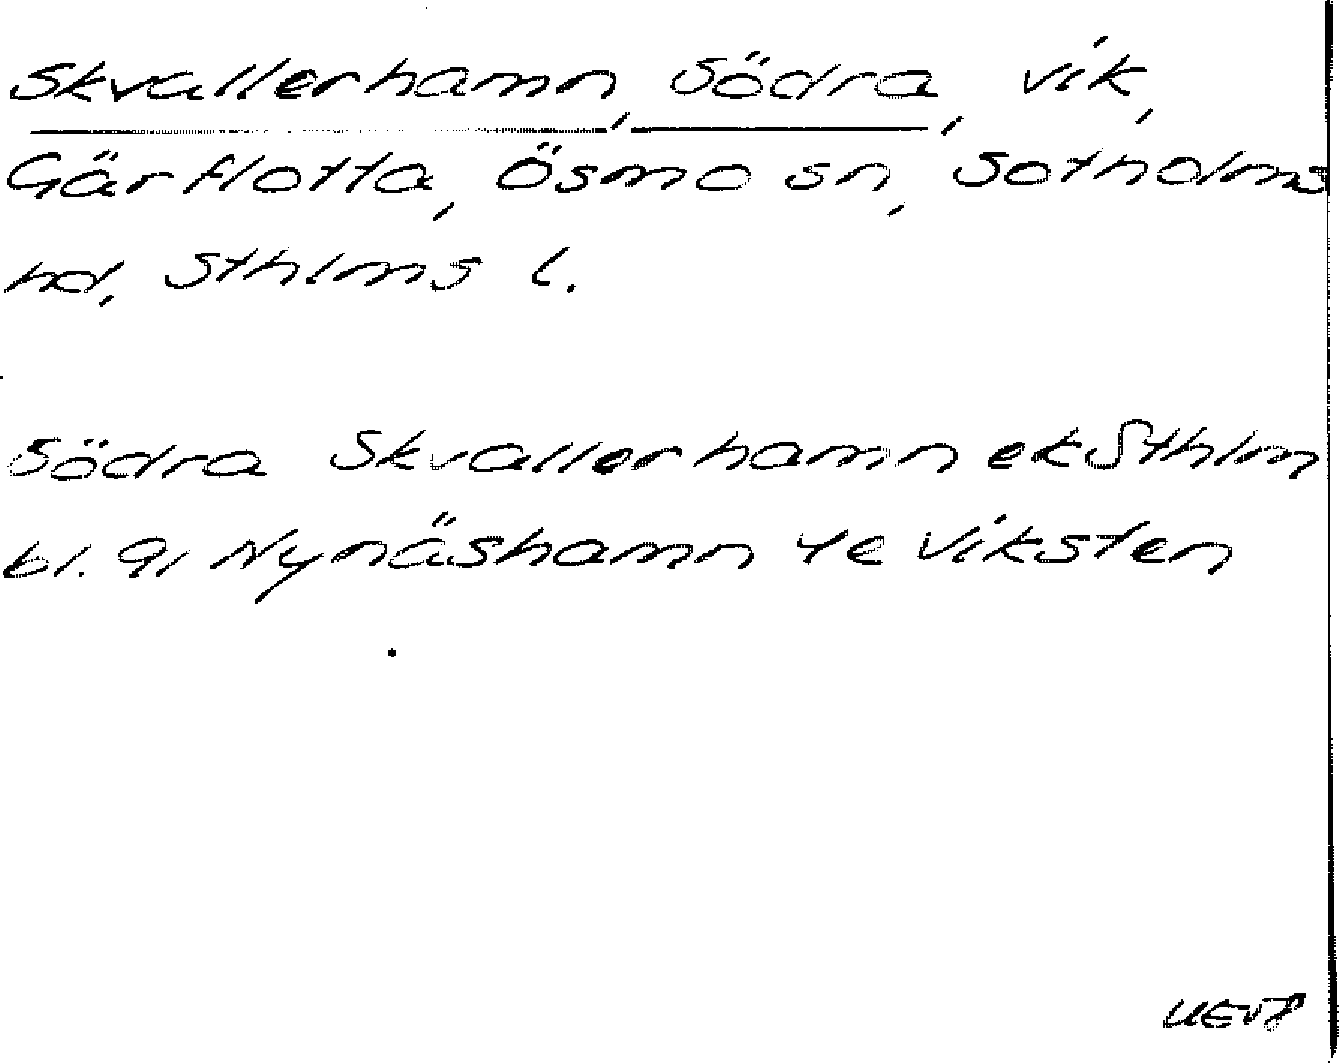 Skvallerhamn, Södra, vik,
Gärflotta, Ösmo sn, Sotholms
hd, Sthlms l.
Södra Skvallerhamn ek Sthlm
bl. 91 Nynäshamn 4e Viksten